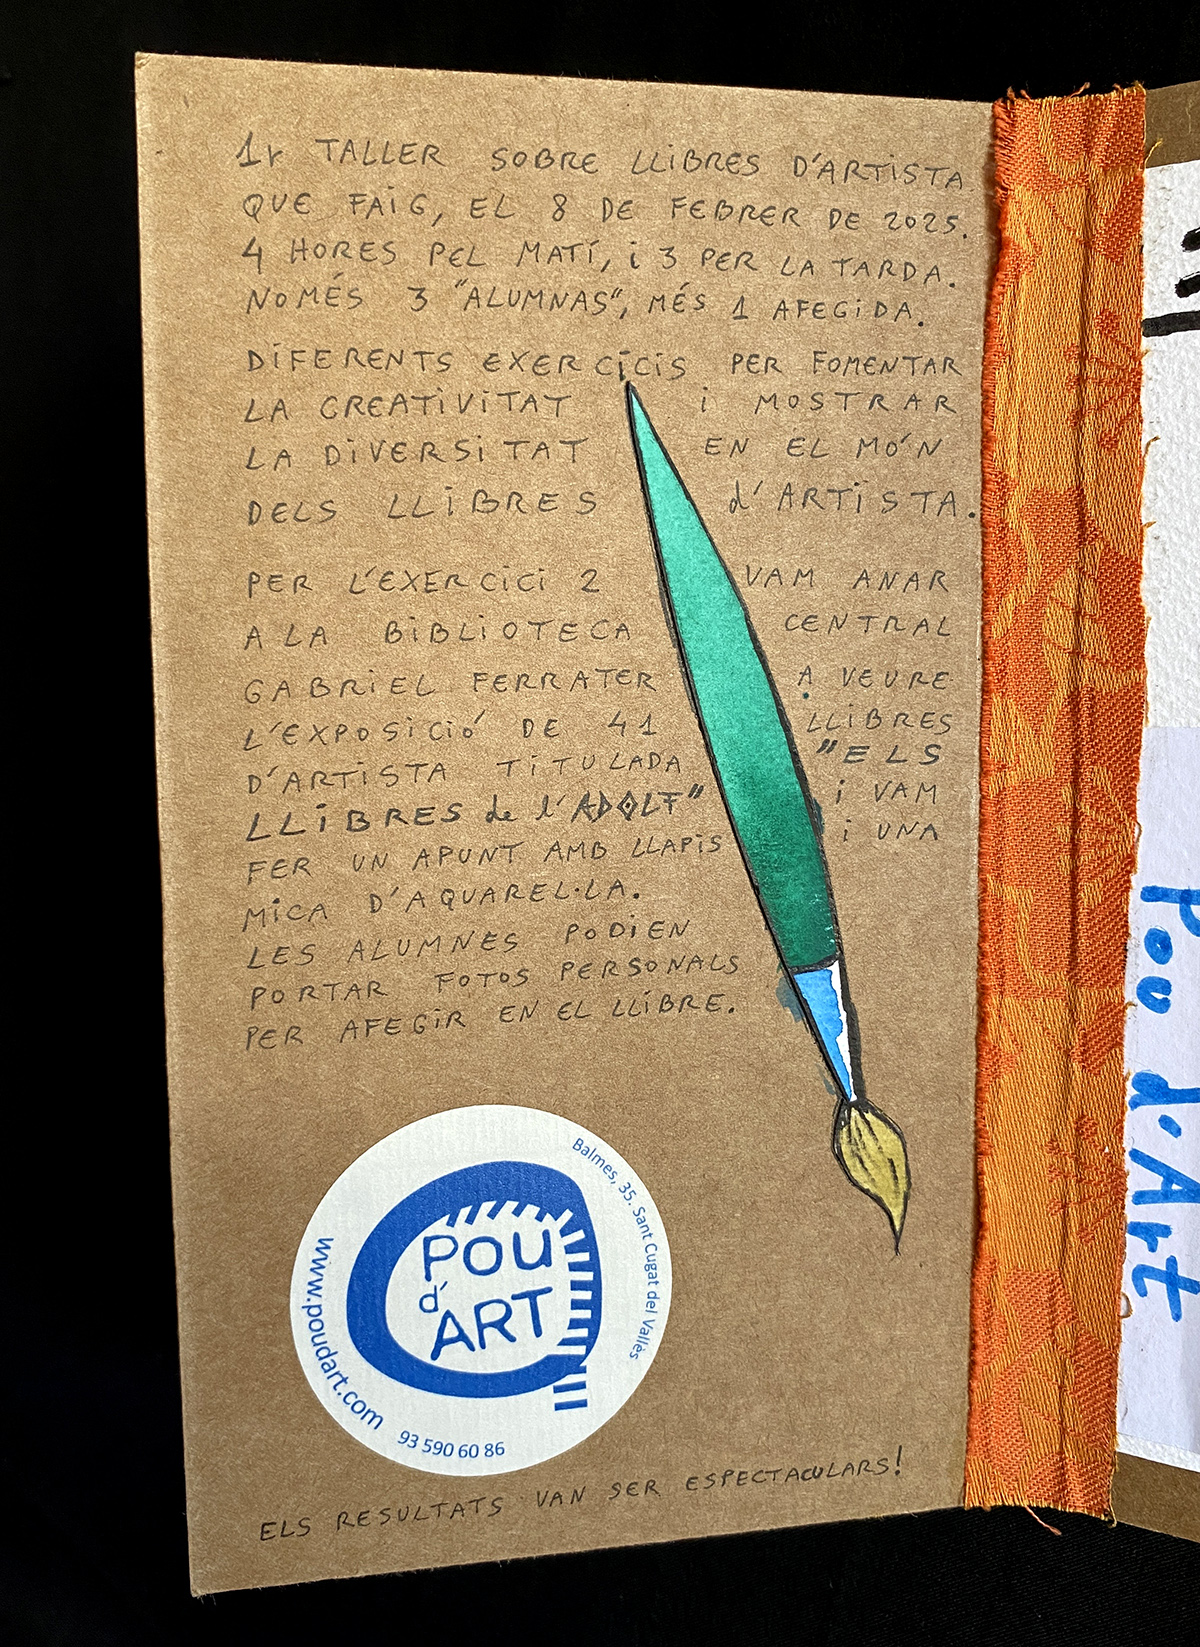 1r TALLER SOBRE LLIBRES D'ARTISTA
QUE FAIG, EL 8 DE FEBRER DE 2025.
4 HORES PEL MATÍ, i 3 PER LA TARDA.
NOMÉS 3 "ALUMNAS", MÉS 1 AFEGIDA.
DIFERENTS EXERCICIS PER FOMENTAR
LA CREATIVITAT i MOSTRAR
LA DIVERSITAT EN EL MÓN
DELS LLIBRES d'ARTISTA.
PER L'EXERCICI 2 VAM ANAR
A LA BIBLIOTECA CENTRAL
GABRIEL FERRATER A VEURE
L'EXPOSICIÓ DE 41 LLIBRES
D'ARTISTA TITULADA "ELS
LLIBRES de l'ADOLF" i VAM
FER UN APUNT AMB LLAPIS i UNA
MICA D'AQUAREL·LA.
LES ALUMNES PODIEN
PORTAR FOTOS PERSONALS
PER AFEGIR EN EL LLIBRE.
POU
d'
ART
Balmes, 35. Sant Cugat del Vallès
www.poudart.com
93 590 60 86
ELS RESULTATS VAN SER ESPECTACULARS!
Pou d'Art